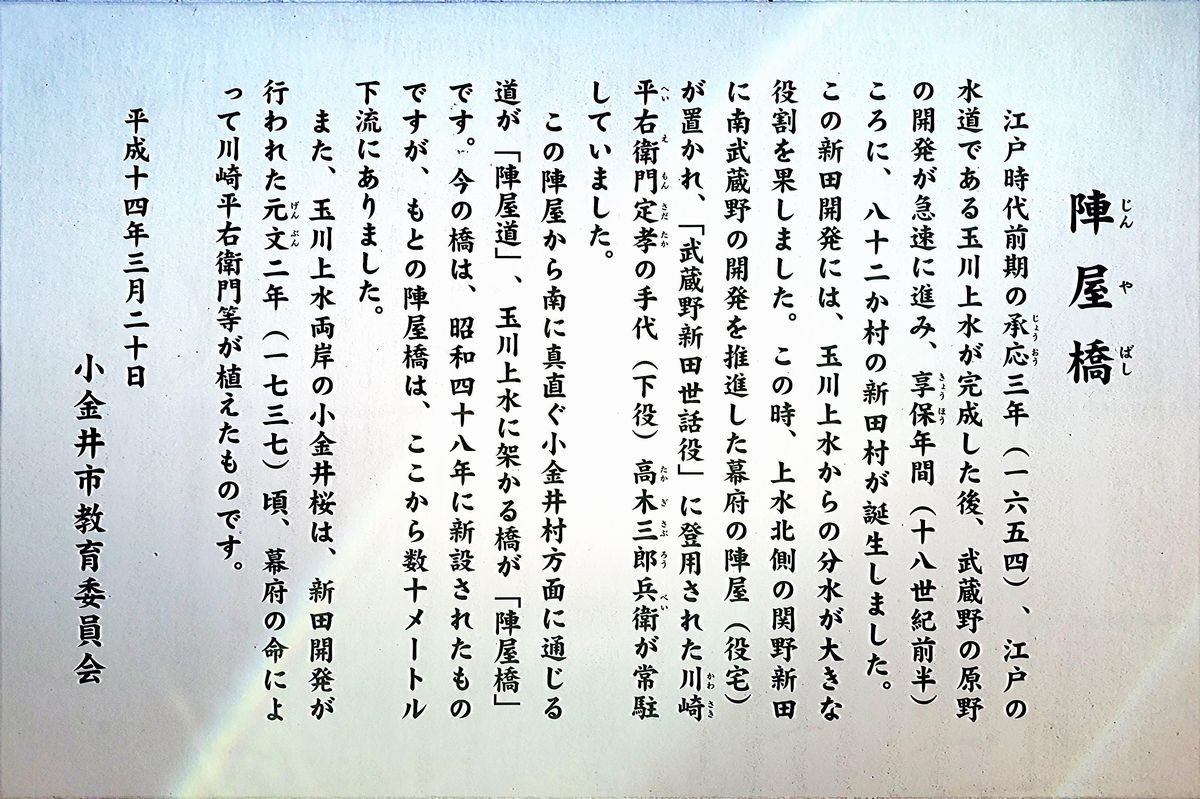 陣屋橋
じんやばし
江戸時代前期の承応三年（一六五四）、江戸の
じょうおう
水道である玉川上水が完成した後、武蔵野の原野
の開発が急速に進み、享保年間（十八世紀前半）
きょうほう
ころに、八十二か村の新田村が誕生しました。
この新田開発には、玉川上水からの分水が大きな
役割を果しました。この時、上水北側の関野新田
に南武蔵野の開発を推進した幕府の陣屋（役宅）
が置かれ、「武蔵野新田世話役」に登用された川崎
かわさき
平右衛門定孝の手代（下役）高木三郎兵衛が常駐
へいえもんさだたか たかぎさぶろうべい
していました。
この陣屋から南に真直ぐ小金井村方面に通じる
道が「陣屋道」、玉川上水に架かる橋が「陣屋橋」
です。今の橋は、昭和四十八年に新設されたもの
ですが、もとの陣屋橋は、ここから数十メートル
下流にありました。
また、玉川上水両岸の小金井桜は、新田開発が
行われた元文二年（一七三七）頃、幕府の命によ
げんぶん
って川崎平右衛門等が植えたものです。
平成十四年三月二十日
小金井市教育委員会